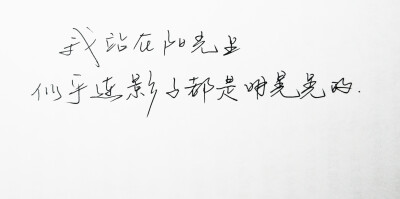 我站在阳光上
似乎连影子都是明晃晃的.